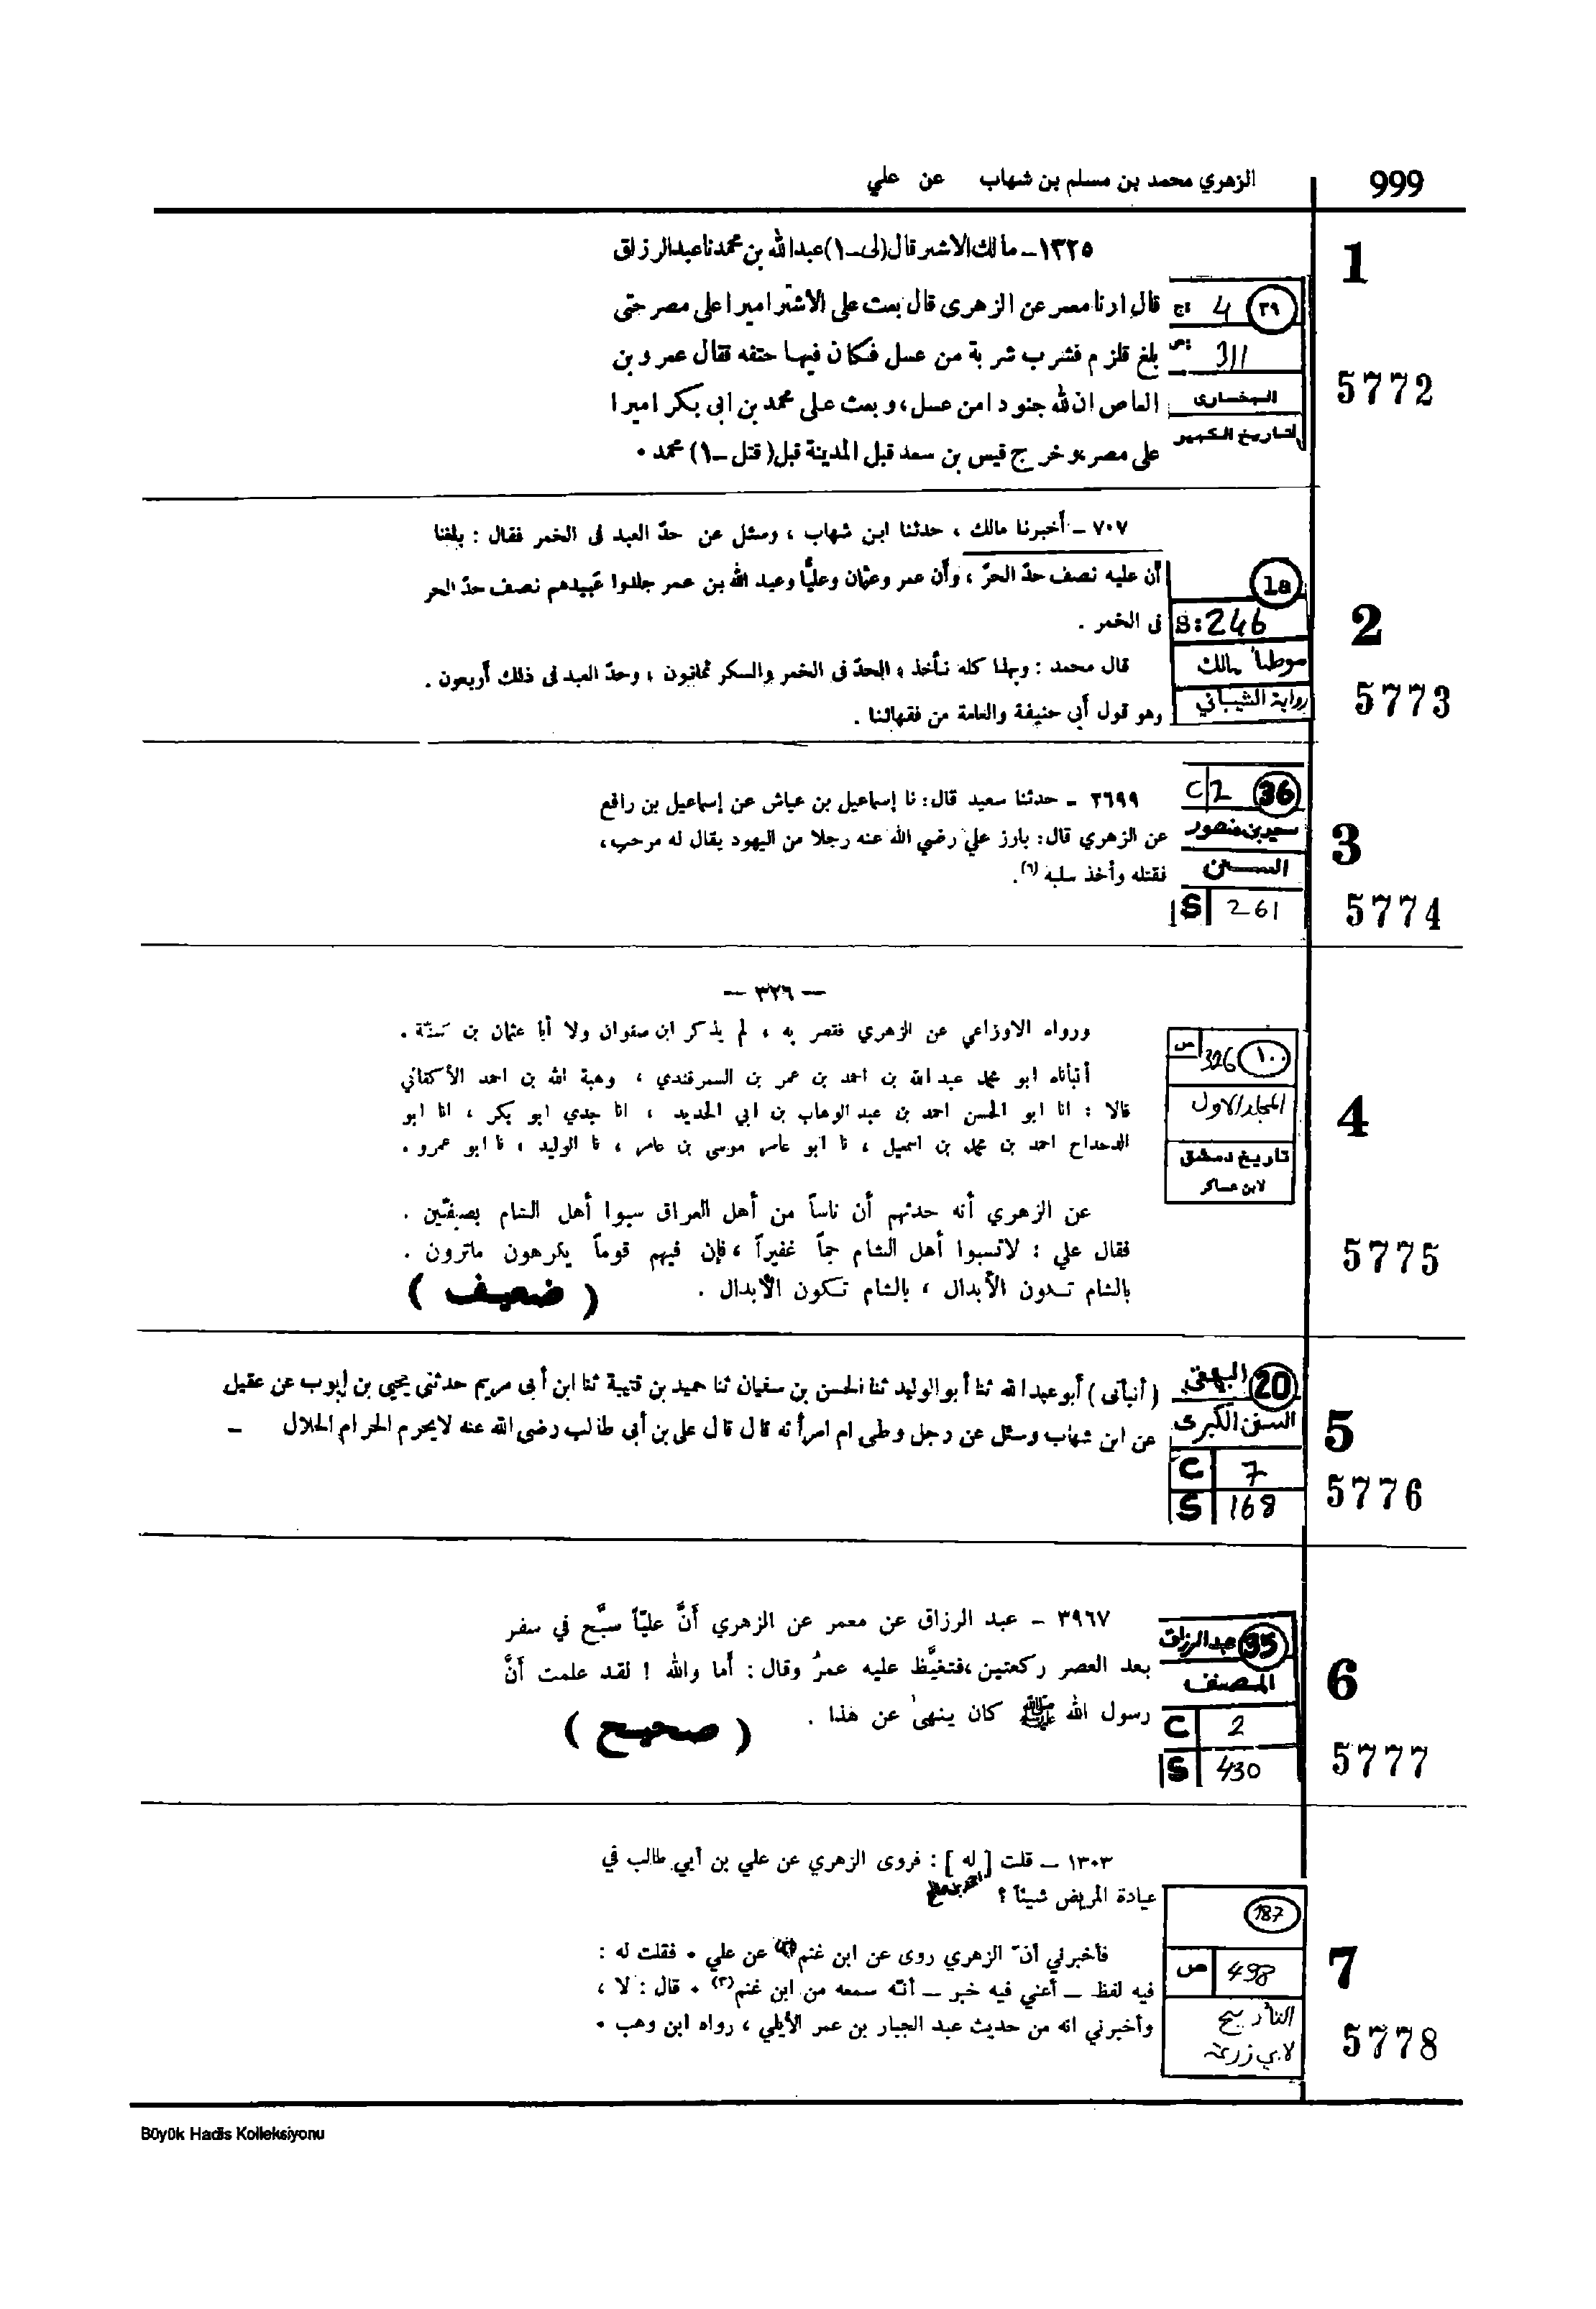 999
الزهري محمد بن مسلم بن شهاب عن علي
1
5772
٣٩ ج: 4
ص: 311
البخاري
التاريخ الكبير
١٣٢٥ـ مالك الاشتر قال (لى ـ١) عبدالله بن محمد نا عبدالرزاق
قال ارنا معمر عن الزهرى قال بعث على الاشتر اميرا على مصر حتى
بلغ قلزم فشرب شربة من عسل فكان فيها حتفه فقال عمرو بن
العاص ان لله جنودا من عسل، وبعث على محمد بن ابى بكر اميرا
على مصر وخرج قيس بن سعد قبل المدينة قبل (قتل ـ١) محمد ٠
2
5773
1a
S: 246
موطأ مالك
رواية الشيباني
٧٠٧ ـ أخبرنا مالك ، حدثنا ابن شهاب ، وسئل عن حدّ العبد فى الخمر فقال : بلغنا
أن عليه نصف حدّ الحرّ ، وأن عمر وعثمان وعليًّا وعبد الله بن عمر جلدوا عَبيدهم نصف حدّ الحر
فى الخمر .
قال محمد : وبهذا كله نأخذ ، الحدّ فى الخمر والسكر ثمانون ، وحدّ العبد فى ذلك أربعون .
وهو قول أبى حنيفة والعامة من فقهائنا .
3
5774
36 C/2
سعيد بن منصور
السنن
S 261
٢٦٩٩ ـ حدثنا سعيد قال: نا إسماعيل بن عياش عن إسماعيل بن رافع
عن الزهري قال: بارز علي رضي الله عنه رجلا من اليهود يقال له مرحب،
فقتله وأخذ سلبه (٦).
4
5775
١٠٠ 326 ص
المجلد الاول
تاريخ دمشق
لابن عساكر
— ٣٢٦ —
ورواه الاوزاعي عن الزهري فقصر به ، لم يذكر ابن صفوان ولا أبا عثمان بن سَنّة .
أنبأناه ابو محمد عبد الله بن احمد بن عمر بن السمرقندي ، وهبة الله بن احمد الأكفاني
قالا : انا ابو الحسن احمد بن عبد الوهاب بن ابي الحديد ، انا جدي ابو بكر ، انا ابو
الدحداح احمد بن محمد بن اسمعيل ، نا ابو عامر موسى بن عامر ، نا الوليد ، نا ابو عمرو .
عن الزهري أنه حدثهم أن ناساً من أهل العراق سبوا أهل الشام بصِفّين .
فقال علي : لاتسبوا أهل الشام جماً غفيراً ، فإن فيهم قوماً يكرهون ماترون .
بالشام تكون الأبدال ، بالشام تكون الأبدال .
( ضعيف )
5
5776
20 البيهقي
السنن الكبرى
C 7
S 168
(أنبأنى) أبو عبد الله ثنا أبو الوليد ثنا الحسن بن سفيان ثنا حميد بن قتيبة ثنا ابن أبى مريم حدثنى يحيى بن أيوب عن عقيل
عن ابن شهاب وسئل عن رجل وطى ام امرأته قال قال على بن أبى طالب رضى الله عنه لايحرم الحرام الحلال –
6
5777
35 عبد الرزاق
المصنف
C 2
S 430
٣٩٦٧ ـ عبد الرزاق عن معمر عن الزهري أنَّ عليّاً سبَّح في سفر
بعد العصر ركعتين ،فتغيَّظ عليه عمرُ وقال : أما والله ! لقد علمت أنَّ
رسول الله ﷺ كان ينهىٰ عن هذا .
( صحيح )
7
5778
187
498 ص
التأريخ
لابي زرعة
١٣٠٣ ـ قلت [ له ] : فروى الزهري عن علي بن أبي طالب في
عيادة المريض شيئاً ؟
احمد بن صالح
فأخبرني أنّ الزهري روى عن ابن غنم(٢) عن علي ٠ فقلت له :
فيه لفظ ـ أعني فيه خبر ـ أنّه سمعه من ابن غنم(٢) ٠ قال : لا ،
وأخبرني انه من حديث عبد الجبار بن عمر الأيلي ، رواه ابن وهب ٠
Büyük Hadis Kolleksiyonu